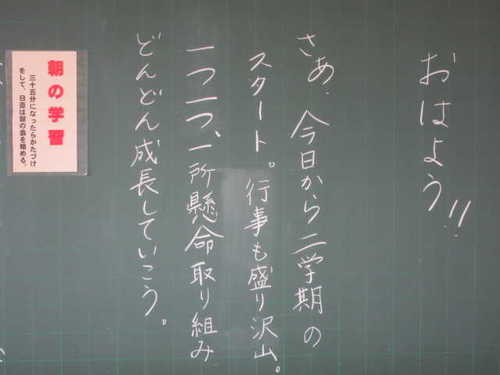 おはよう!!
さあ、今日から二学期の
スタート。行事も盛り沢山。
一つ一つ、一所懸命取り組み
どんどん成長していこう。
朝の学習
三十五分になったらかたづけ
をして、日直は朝の会を始める。